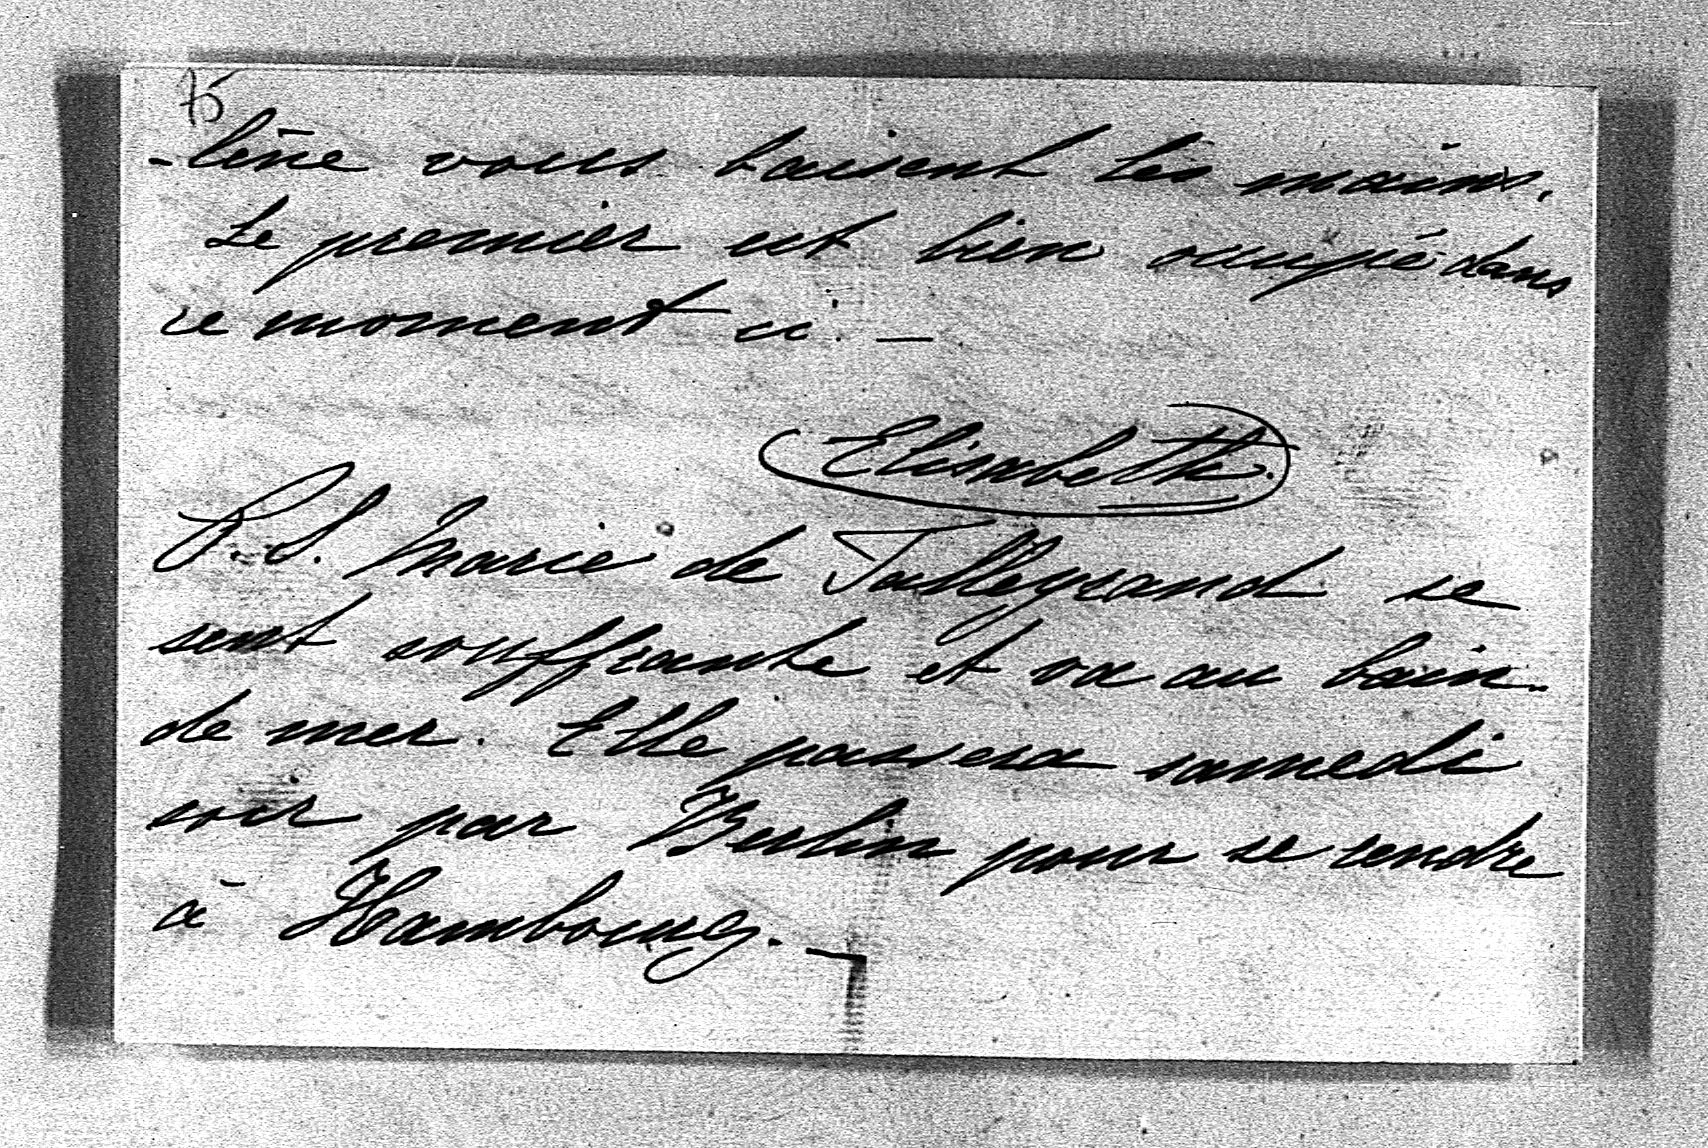 75
-line vous baisent les mains.
Le premier est bien occupé dans
ce moment ci. —
Elisabeth.
P.S. Marie de Talleyrand se
sent souffrante et va au bain
de mer. Elle passera samedi
soir par Berlin pour se rendre
à Hambourg. —